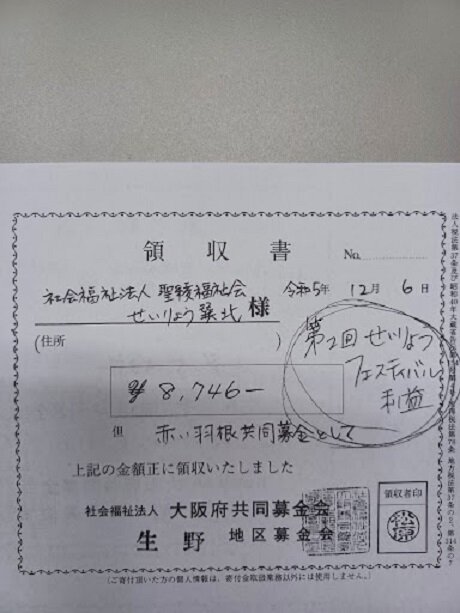 領収書
No.
社会福祉法人 聖綾福祉会
せいりょう巽北 様
令和5年 12月 6日
(住所 )
第2回せいりょう
フェスティバル
利益
¥8,746—
但 赤い羽根共同募金として
上記の金額正に領収いたしました
社会福祉法人 大阪府共同募金会
生野 地区募金会
領収者印
(ご寄付頂いた方の個人情報は、寄付金取扱業務以外には使用しません。)